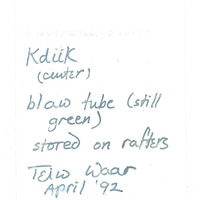 Kdiik
(outer)
blow tube (still
green)
stored on rafters
April '92